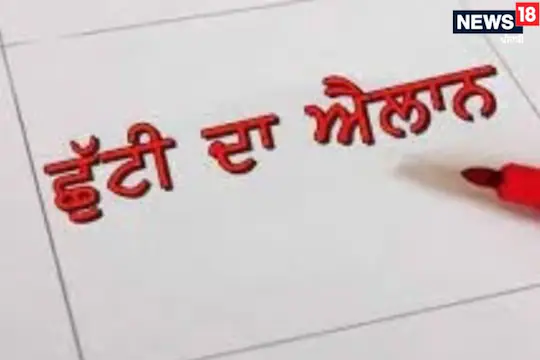 NEWS 18
ਪੰਜਾਬ
ਛੁੱਟੀ ਦਾ ਐਲਾਨ